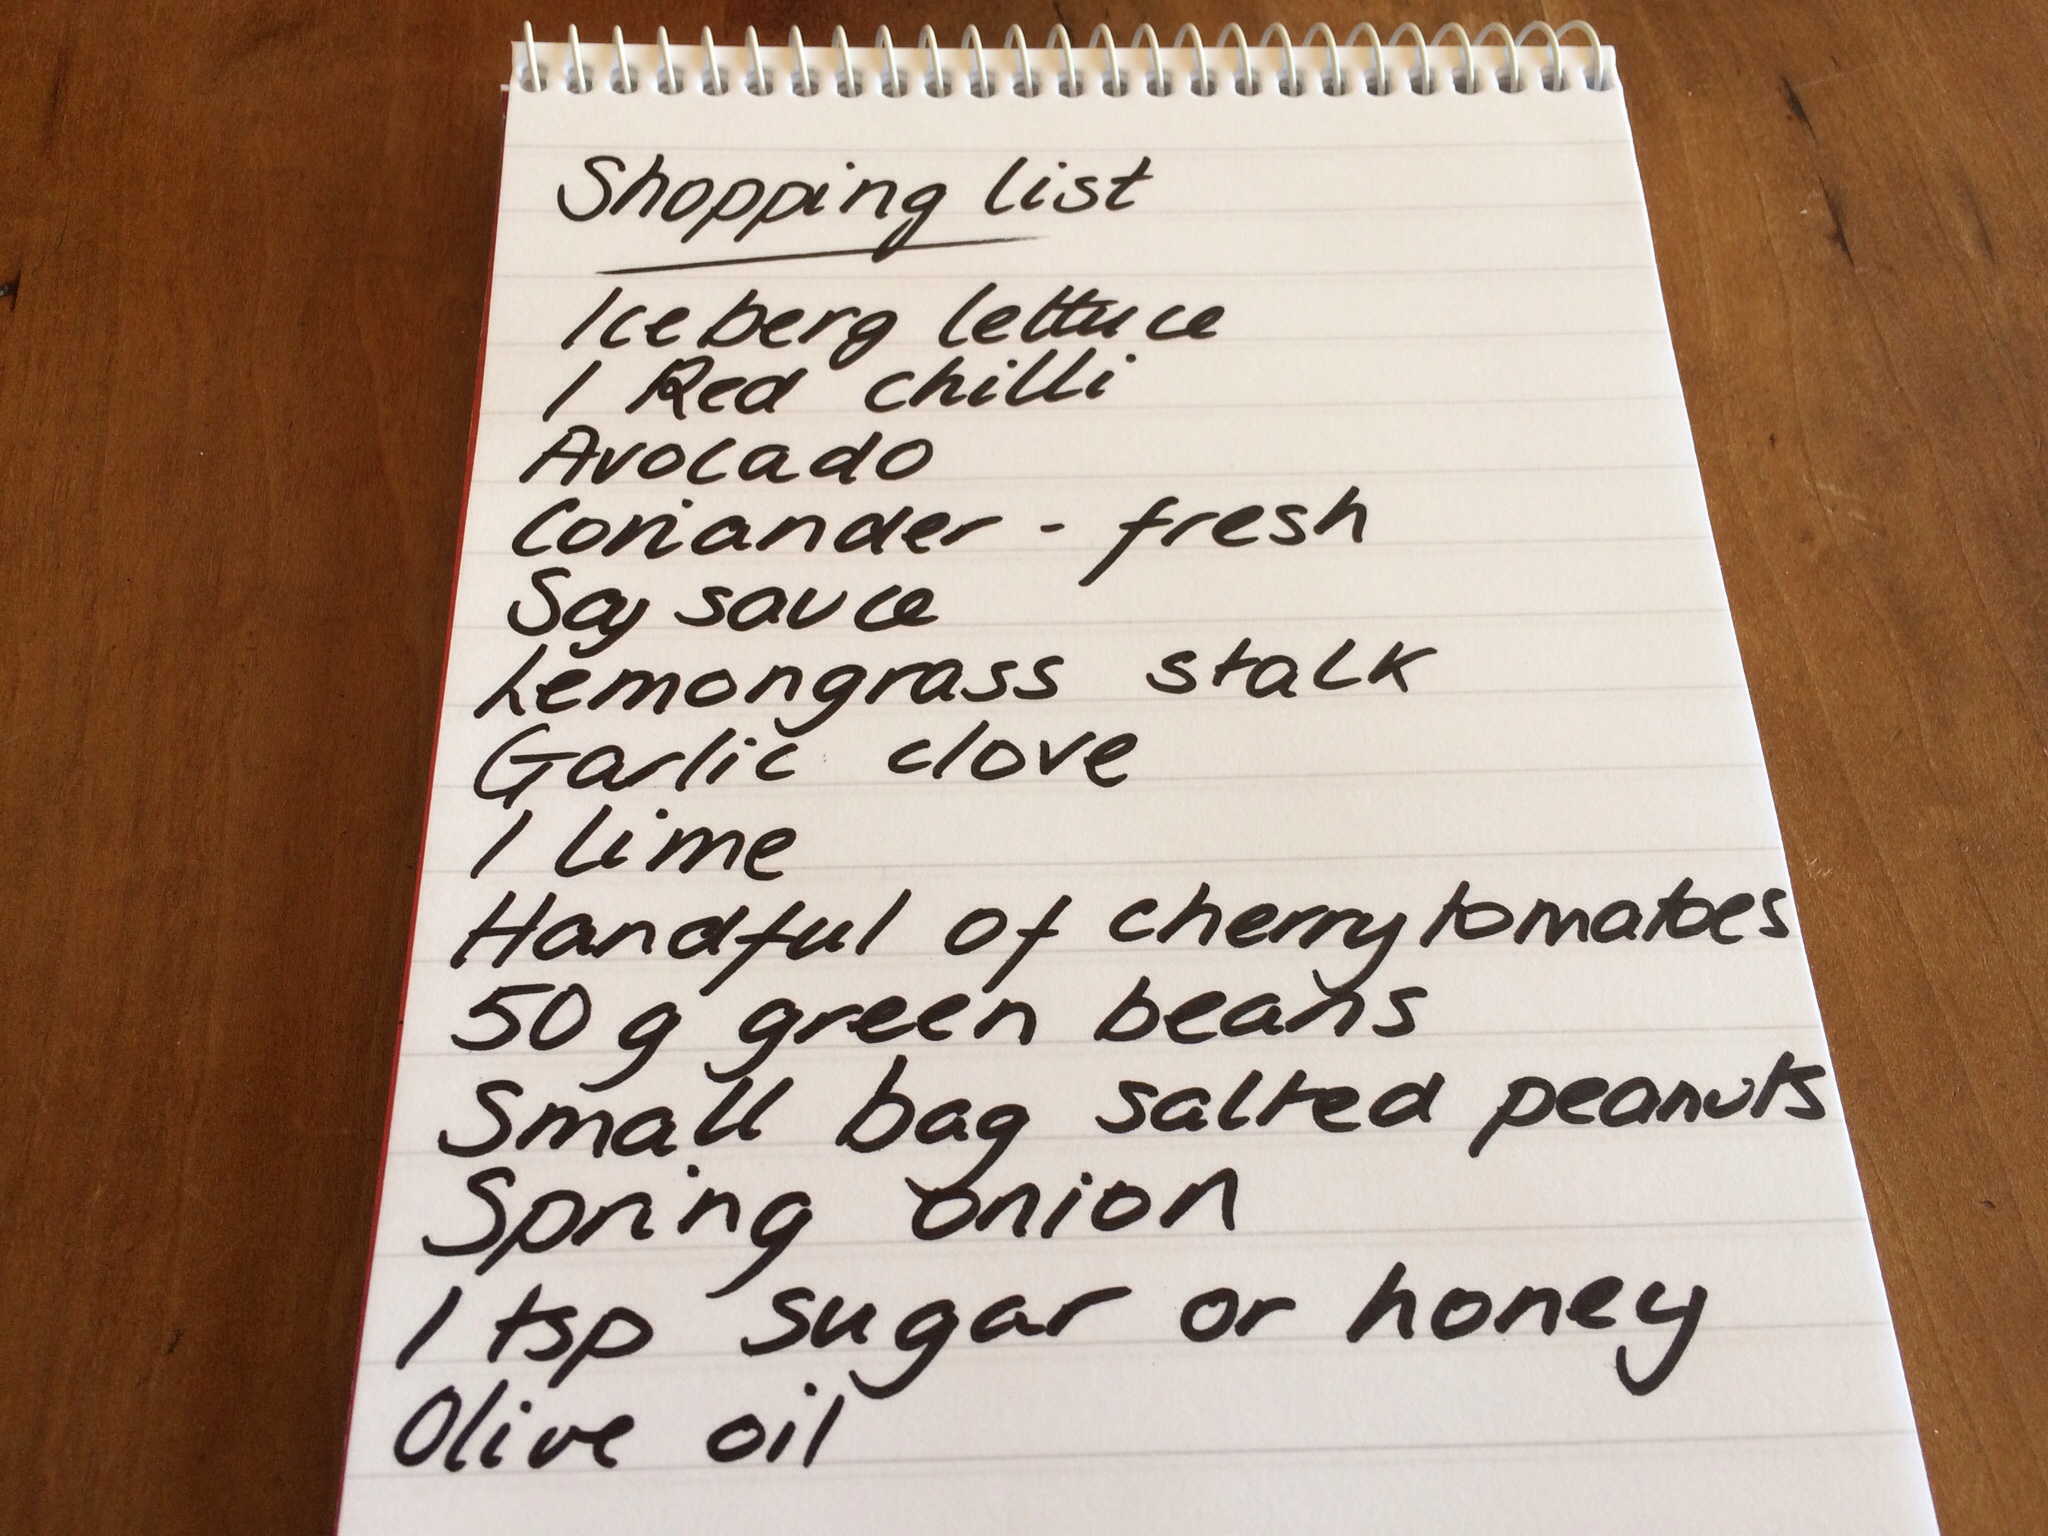 Shopping list
Iceberg lettuce
1 Red chilli
Avocado
Coriander - fresh
Soy sauce
Lemongrass stalk
Garlic clove
1 lime
Handful of cherry tomatoes
50 g green beans
Small bag salted peanuts
Spring onion
1 tsp sugar or honey
Olive oil